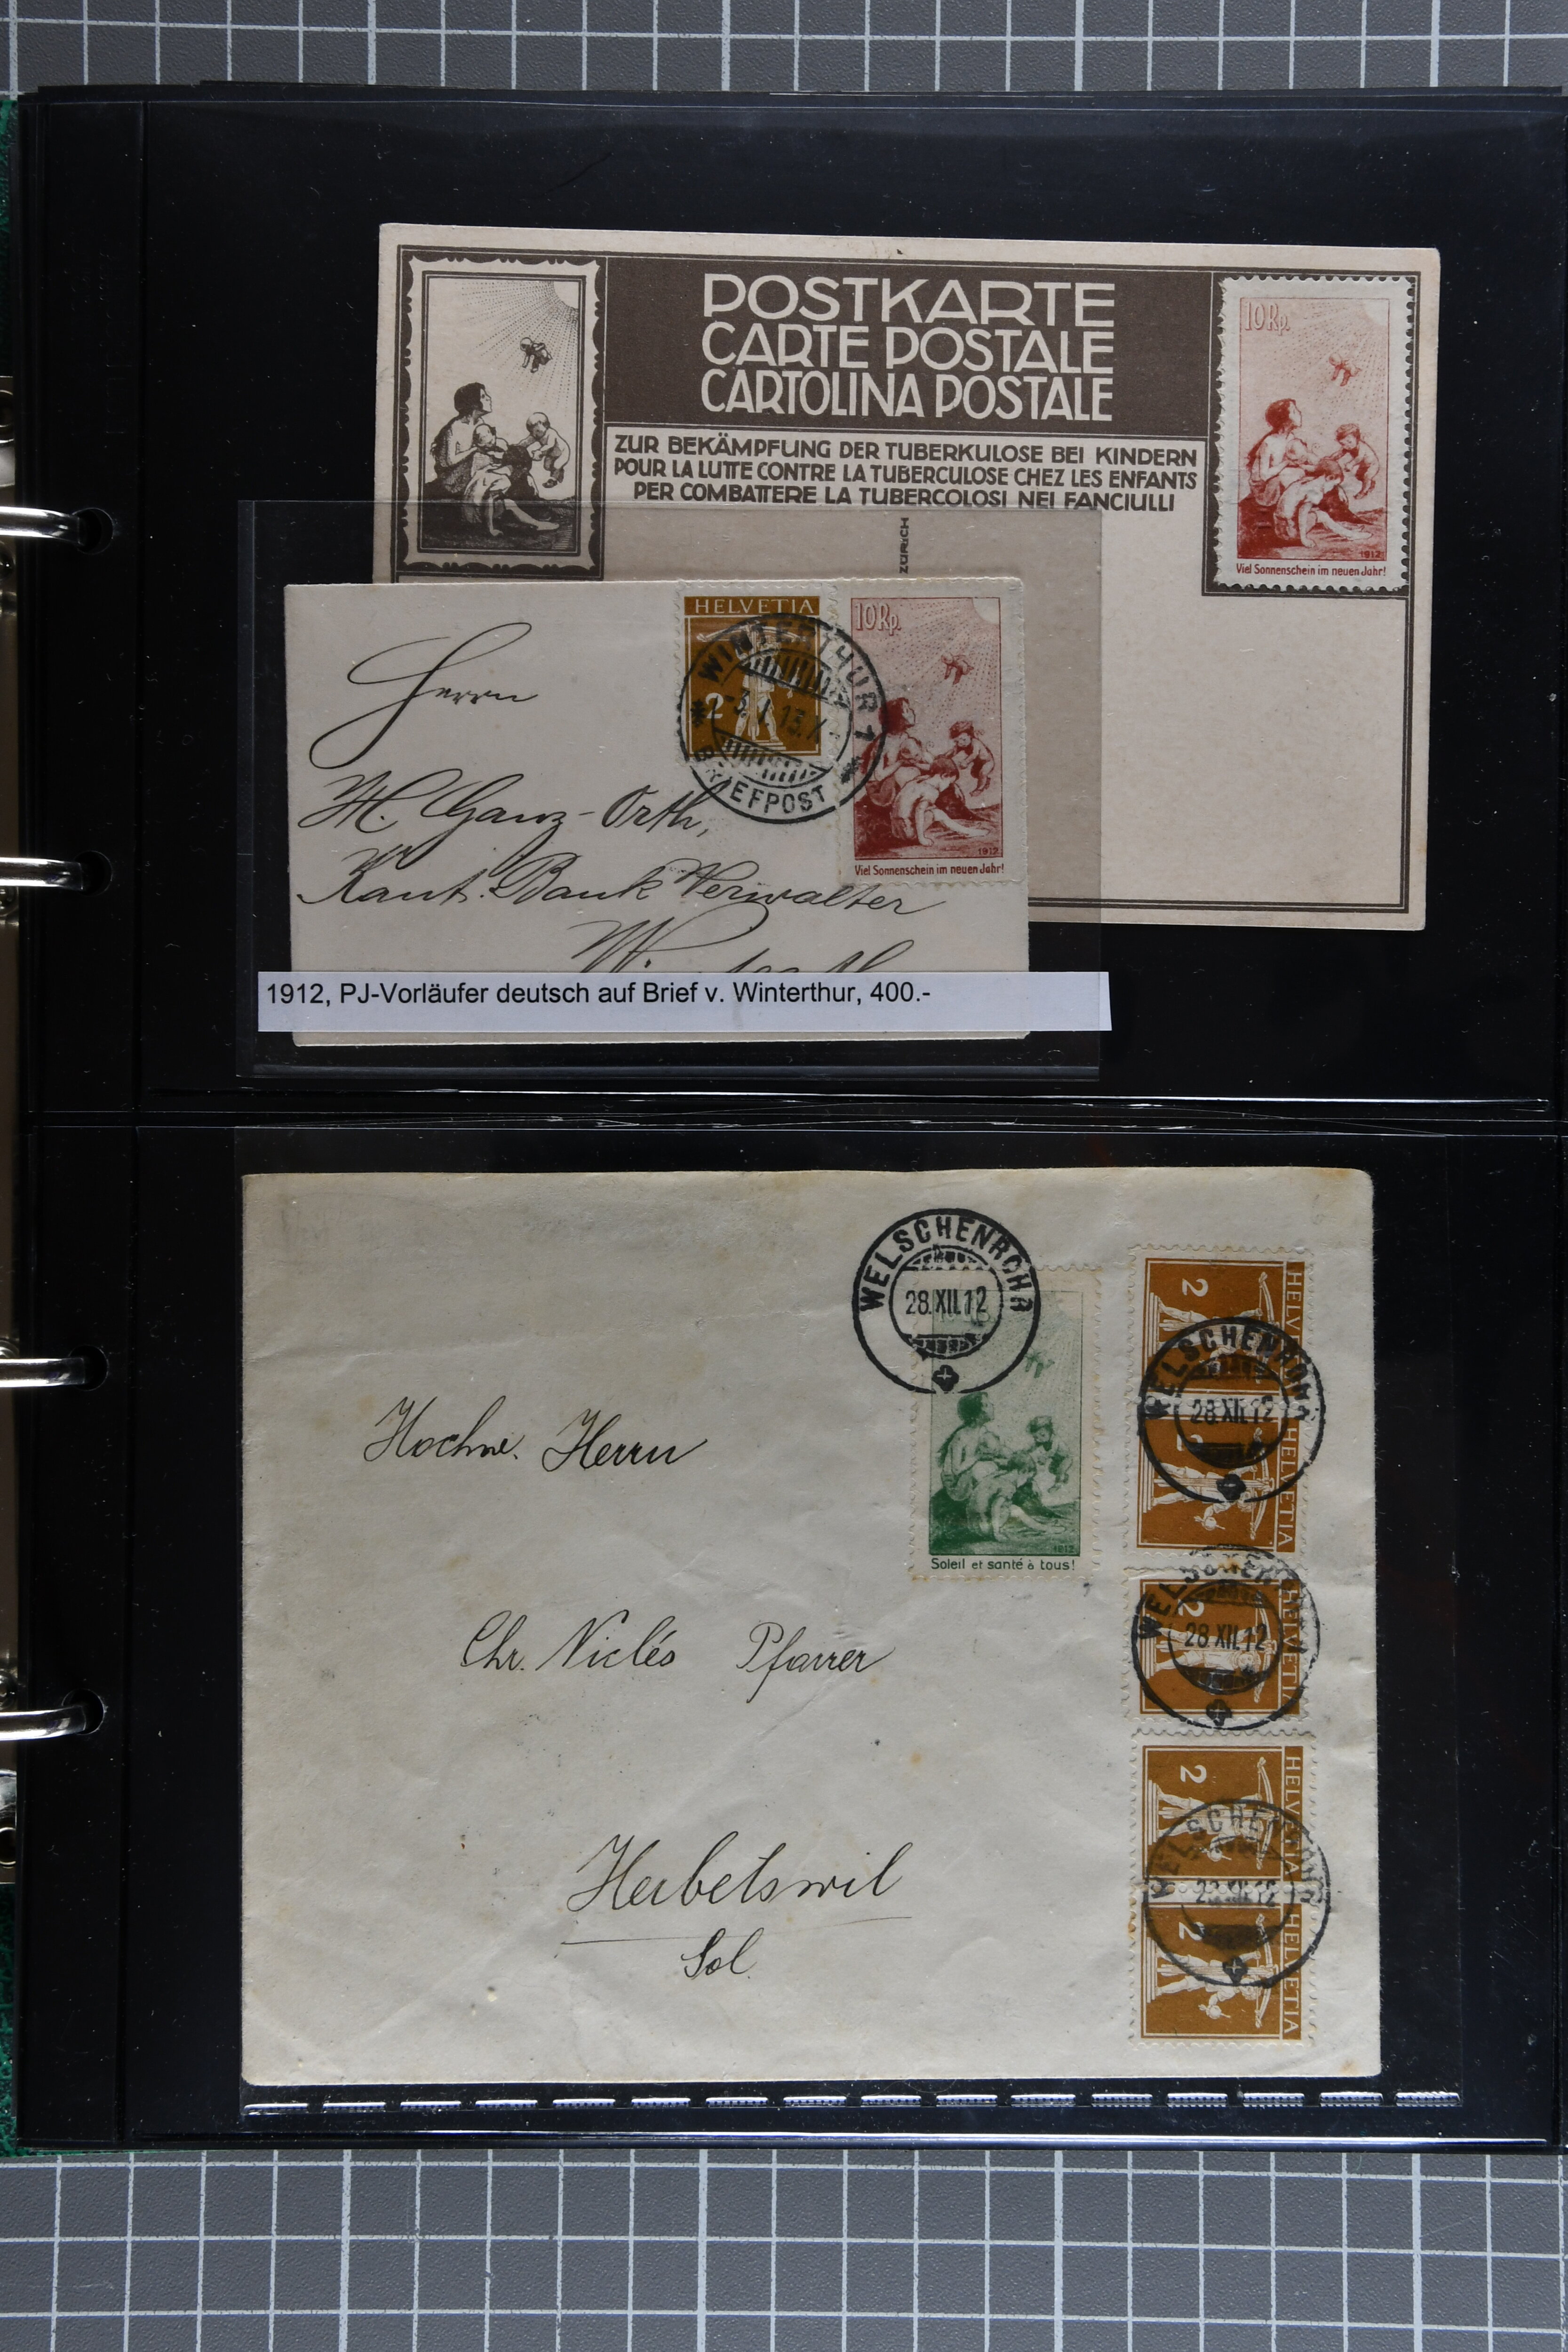 POSTKARTE
CARTE POSTALE
CARTOLINA POSTALE
ZUR BEKÄMPFUNG DER TUBERKULOSE BEI KINDERN
POUR LA LUTTE CONTRE LA TUBERCULOSE CHEZ LES ENFANTS
PER COMBATTERE LA TUBERCOLOSI NEI FANCIULLI
10 Rp.
1912
Viel Sonnenschein im neuen Jahr!
ZÜRICH
HELVETIA
2
WINTERTHUR 1
BRIEFPOST
10 Rp.
1912
Viel Sonnenschein im neuen Jahr!
Herrn
H. Ganz-Orth,
Kant. Bank Verwalter
1912, PJ-Vorläufer deutsch auf Brief v. Winterthur, 400.-
WELSCHENROHR
28.XII.12
1912
Soleil et santé à tous!
HELVETIA
2
HELVETIA
2
WELSCHENROHR
28.XII.12
HELVETIA
2
WELSCHENROHR
28.XII.12
HELVETIA
2
HELVETIA
2
WELSCHENROHR
28.XII.12
Hochw. Herrn
Chr. Niclés Pfarrer
Herbetswil
Sol.